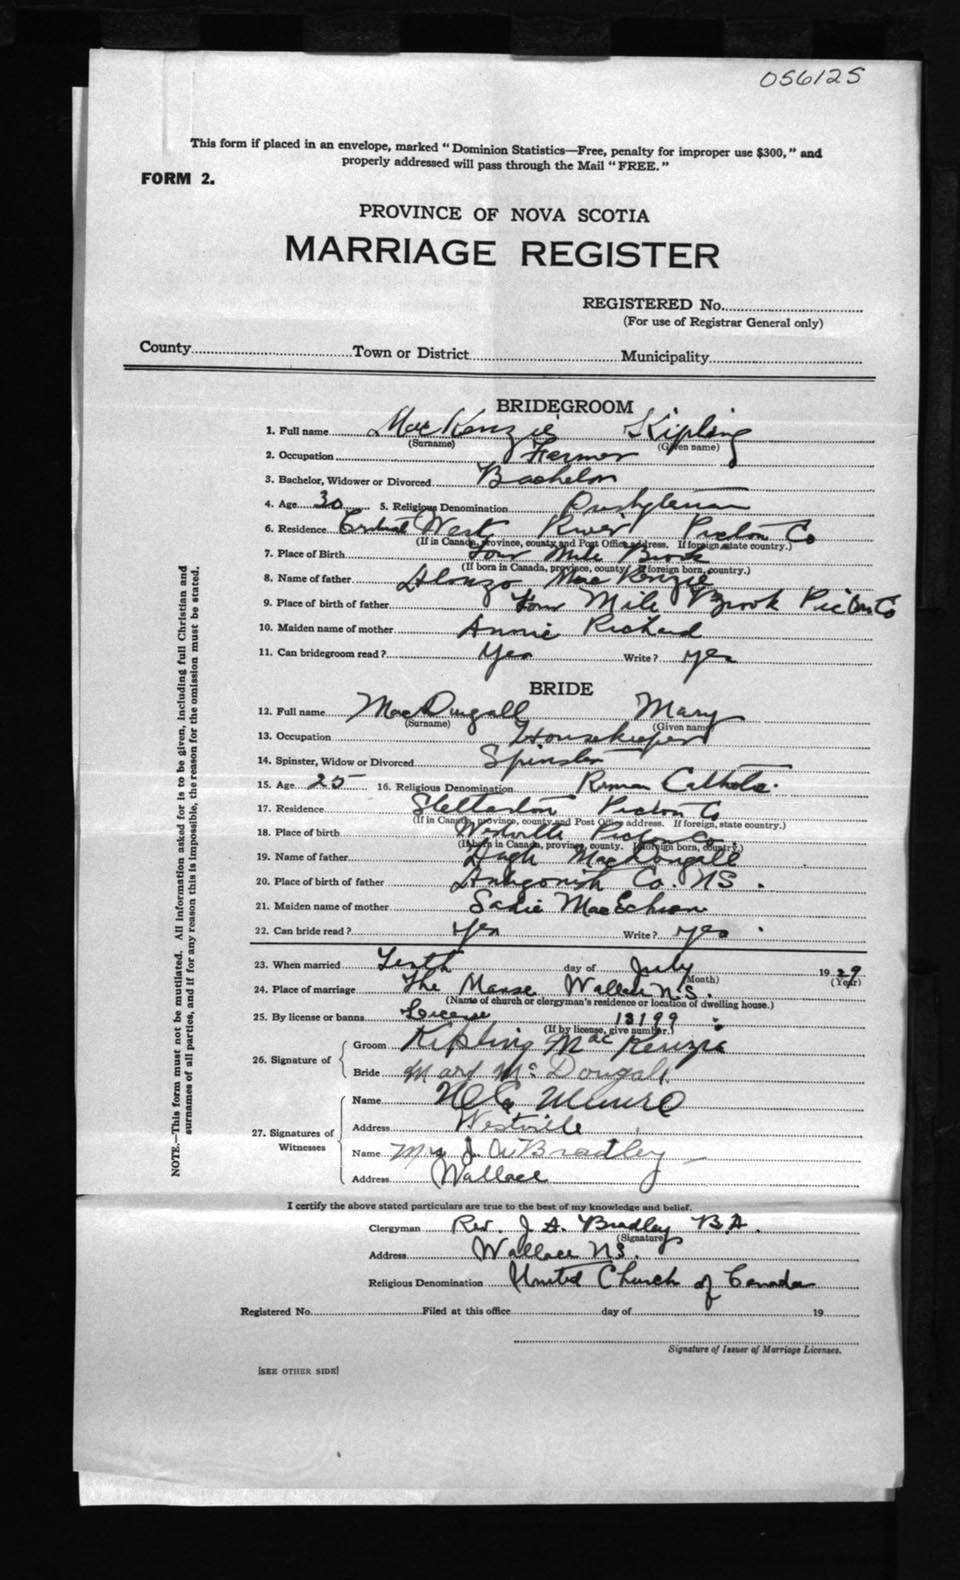 056125
This form if placed in an envelope, marked "Dominion Statistics—Free, penalty for improper use $300," and
properly addressed will pass through the Mail "FREE."
FORM 2.
PROVINCE OF NOVA SCOTIA
MARRIAGE REGISTER
REGISTERED No.
(For use of Registrar General only)
County Town or District Municipality
BRIDEGROOM
1. Full name MacKenzie Kipling
(Surname) (Given name)
2. Occupation Farmer
3. Bachelor, Widower or Divorced Bachelor
4. Age 30 5. Religious Denomination Presbyterian
6. Residence Central West River Pictou Co
(If in Canada, province, county and Post Office address. If foreign, state country.)
7. Place of Birth Four Mile Brook
(If born in Canada, province, county. If foreign born, country.)
8. Name of father Alonzo MacKenzie
9. Place of birth of father Four Mile Brook Pictou Co
10. Maiden name of mother Annie Richard
11. Can bridegroom read? Yes Write? Yes
BRIDE
12. Full name MacDougall Mary
(Surname) (Given name)
13. Occupation Housekeeper
14. Spinster, Widow or Divorced Spinster
15. Age 25 16. Religious Denomination Roman Catholic
17. Residence Stellarton Pictou Co
(If in Canada, province, county and Post Office address. If foreign, state country.)
18. Place of birth Westville Pictou Co.
(If born in Canada, province, county. If foreign born, country.)
19. Name of father Hugh MacDougall
20. Place of birth of father Antigonish Co. NS.
21. Maiden name of mother Sadie MacEchern
22. Can bride read? Yes Write? Yes
23. When married Tenth day of July 1929
(Month) (Year)
24. Place of marriage The Manse Wallace N.S.
(Name of church or clergyman's residence or location of dwelling house.)
25. By license or banns License 13199
(If by license, give number.)
26. Signature of Groom Kipling MacKenzie
Bride Mary McDougall
27. Signatures of Witnesses
Name Munro
Address Westville
Name Mrs J. A. Bradley
Address Wallace
I certify the above stated particulars are true to the best of my knowledge and belief.
Clergyman Rev. J. A. Bradley B.A.
(Signature)
Address Wallace N.S.
Religious Denomination United Church of Canada
Registered No. Filed at this office day of 19
Signature of Issuer of Marriage Licenses.
[SEE OTHER SIDE]
NOTE.—This form must not be mutilated. All information asked for is to be given, including full Christian and
surnames of all parties, and if for any reason this is impossible, the reason for the omission must be stated.